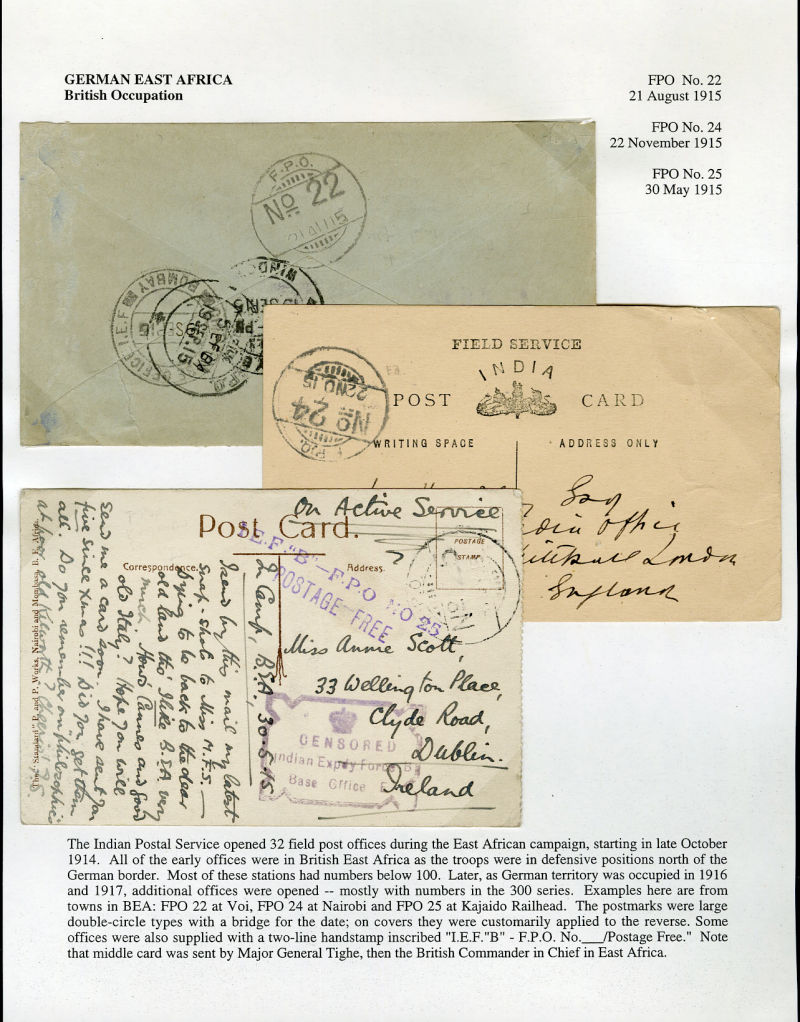 GERMAN EAST AFRICA
British Occupation
FPO No. 22
21 August 1915
FPO No. 24
22 November 1915
FPO No. 25
30 May 1915
F.P.O.
No 22
21 AU 15
BOMBAY
FIELD SERVICE
INDIA
POST CARD
WRITING SPACE
ADDRESS ONLY
22 NO 15
No 24
F.P.O.
Esq
India Office
Whitehall London
England
On Active Service
Post Card.
POSTAGE
STAMP
Correspondence.
Address.
I.E.F."B"-F.P.O NO 25
POSTAGE FREE
Miss Annie Scott,
33 Wellington Place,
Clyde Road,
Dublin.
Ireland
CENSORED
Indian Expdy Force B
Base Office
In Camp, B.E.A., 30-5-15
I send by this mail my latest
snap-shot to Miss M.F.S. —
Dying to be back to the dear
old land tho' I like B.E.A. very
much. How's Cannes and good
old Italy? Hope you will
send me a card soon. I have sent you
five since Xmas!!! Did you get them
all. Do you remember our "philosophies"
at poor old
The "Standard" P. and P. Works, Nairobi and Mombasa, B. E. Africa.
The Indian Postal Service opened 32 field post offices during the East African campaign, starting in late October
1914. All of the early offices were in British East Africa as the troops were in defensive positions north of the
German border. Most of these stations had numbers below 100. Later, as German territory was occupied in 1916
and 1917, additional offices were opened -- mostly with numbers in the 300 series. Examples here are from
towns in BEA: FPO 22 at Voi, FPO 24 at Nairobi and FPO 25 at Kajaido Railhead. The postmarks were large
double-circle types with a bridge for the date; on covers they were customarily applied to the reverse. Some
offices were also supplied with a two-line handstamp inscribed "I.E.F."B" - F.P.O. No.___/Postage Free." Note
that middle card was sent by Major General Tighe, then the British Commander in Chief in East Africa.